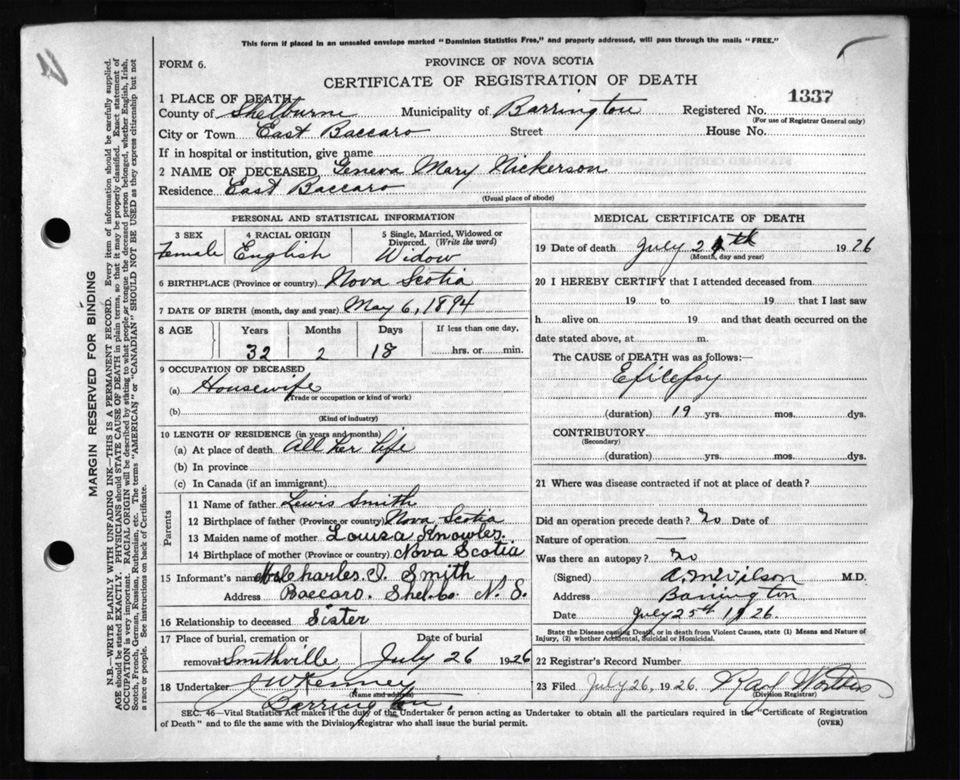 This form if placed in an unsealed envelope marked "Dominion Statistics Free," and properly addressed, will pass through the mails "FREE."
FORM 6.
PROVINCE OF NOVA SCOTIA
CERTIFICATE OF REGISTRATION OF DEATH
1 PLACE OF DEATH
County of Shelburne Municipality of Barrington Registered No. 1337
(For use of Registrar General only)
City or Town East Baccaro Street House No.
If in hospital or institution, give name
2 NAME OF DECEASED Geneva Mary Nickerson
Residence East Baccaro
(Usual place of abode)
PERSONAL AND STATISTICAL INFORMATION
3 SEX
Female
4 RACIAL ORIGIN
English
5 Single, Married, Widowed or Divorced. (Write the word)
Widow
6 BIRTHPLACE (Province or country) Nova Scotia
7 DATE OF BIRTH (month, day and year) May 6, 1894
8 AGE Years Months Days If less than one day.
32 2 18 hrs. or min.
9 OCCUPATION OF DECEASED
(a) Housewife
(Trade or occupation or kind of work)
(b)
(Kind of industry)
10 LENGTH OF RESIDENCE (in years and months)
(a) At place of death All her life
(b) In province
(c) In Canada (if an immigrant)
Parents
11 Name of father Lewis Smith
12 Birthplace of father (Province or country) Nova Scotia
13 Maiden name of mother Louisa Knowles
14 Birthplace of mother (Province or country) Nova Scotia
15 Informant's name Mrs Charles I. Smith
Address Baccaro. Shel. Co. N. S.
16 Relationship to deceased Sister
17 Place of burial, cremation or Date of burial
removal Smithville July 26 1926
18 Undertaker J W Kenney
(Name and address)
Barrington.
MEDICAL CERTIFICATE OF DEATH
19 Date of death July 24th 1926
(Month, day and year)
20 I HEREBY CERTIFY that I attended deceased from
19 to 19 that I last saw
h alive on 19 and that death occurred on the
date stated above, at m.
The CAUSE of DEATH was as follows:—
Epilepsy
(duration) 19 yrs. mos. dys.
CONTRIBUTORY
(Secondary)
(duration) yrs. mos. dys.
21 Where was disease contracted if not at place of death?
Did an operation precede death? No Date of
Nature of operation —
Was there an autopsy? No
(Signed) A. M. Wilson M.D.
Address Barrington
Date July 25th 1926.
State the Disease causing Death, or in death from Violent Causes, state (1) Means and Nature of
Injury, (2) whether Accidental, Suicidal or Homicidal.
22 Registrar's Record Number
23 Filed July 26, 1926 Ray
(Division Registrar)
SEC. 46—Vital Statistics Act makes it the duty of the Undertaker or person acting as Undertaker to obtain all the particulars required in the "Certificate of Registration
of Death" and to file the same with the Division Registrar who shall issue the burial permit.
(OVER)
MARGIN RESERVED FOR BINDING
N.B.—WRITE PLAINLY WITH UNFADING INK—THIS IS A PERMANENT RECORD. Every item of information should be carefully supplied.
AGE should be stated EXACTLY. PHYSICIANS should STATE CAUSE OF DEATH in plain terms, so that it may be properly classified. Exact statement of
OCCUPATION is very important. RACIAL ORIGIN will be described by stating to what people or tongue the deceased person belonged, whether English, Irish,
Scotch, French, German, Russian, Ruthenian, etc. The terms "AMERICAN" or "CANADIAN" SHOULD NOT BE USED as they express citizenship but not
a race or people. See instructions on back of Certificate.